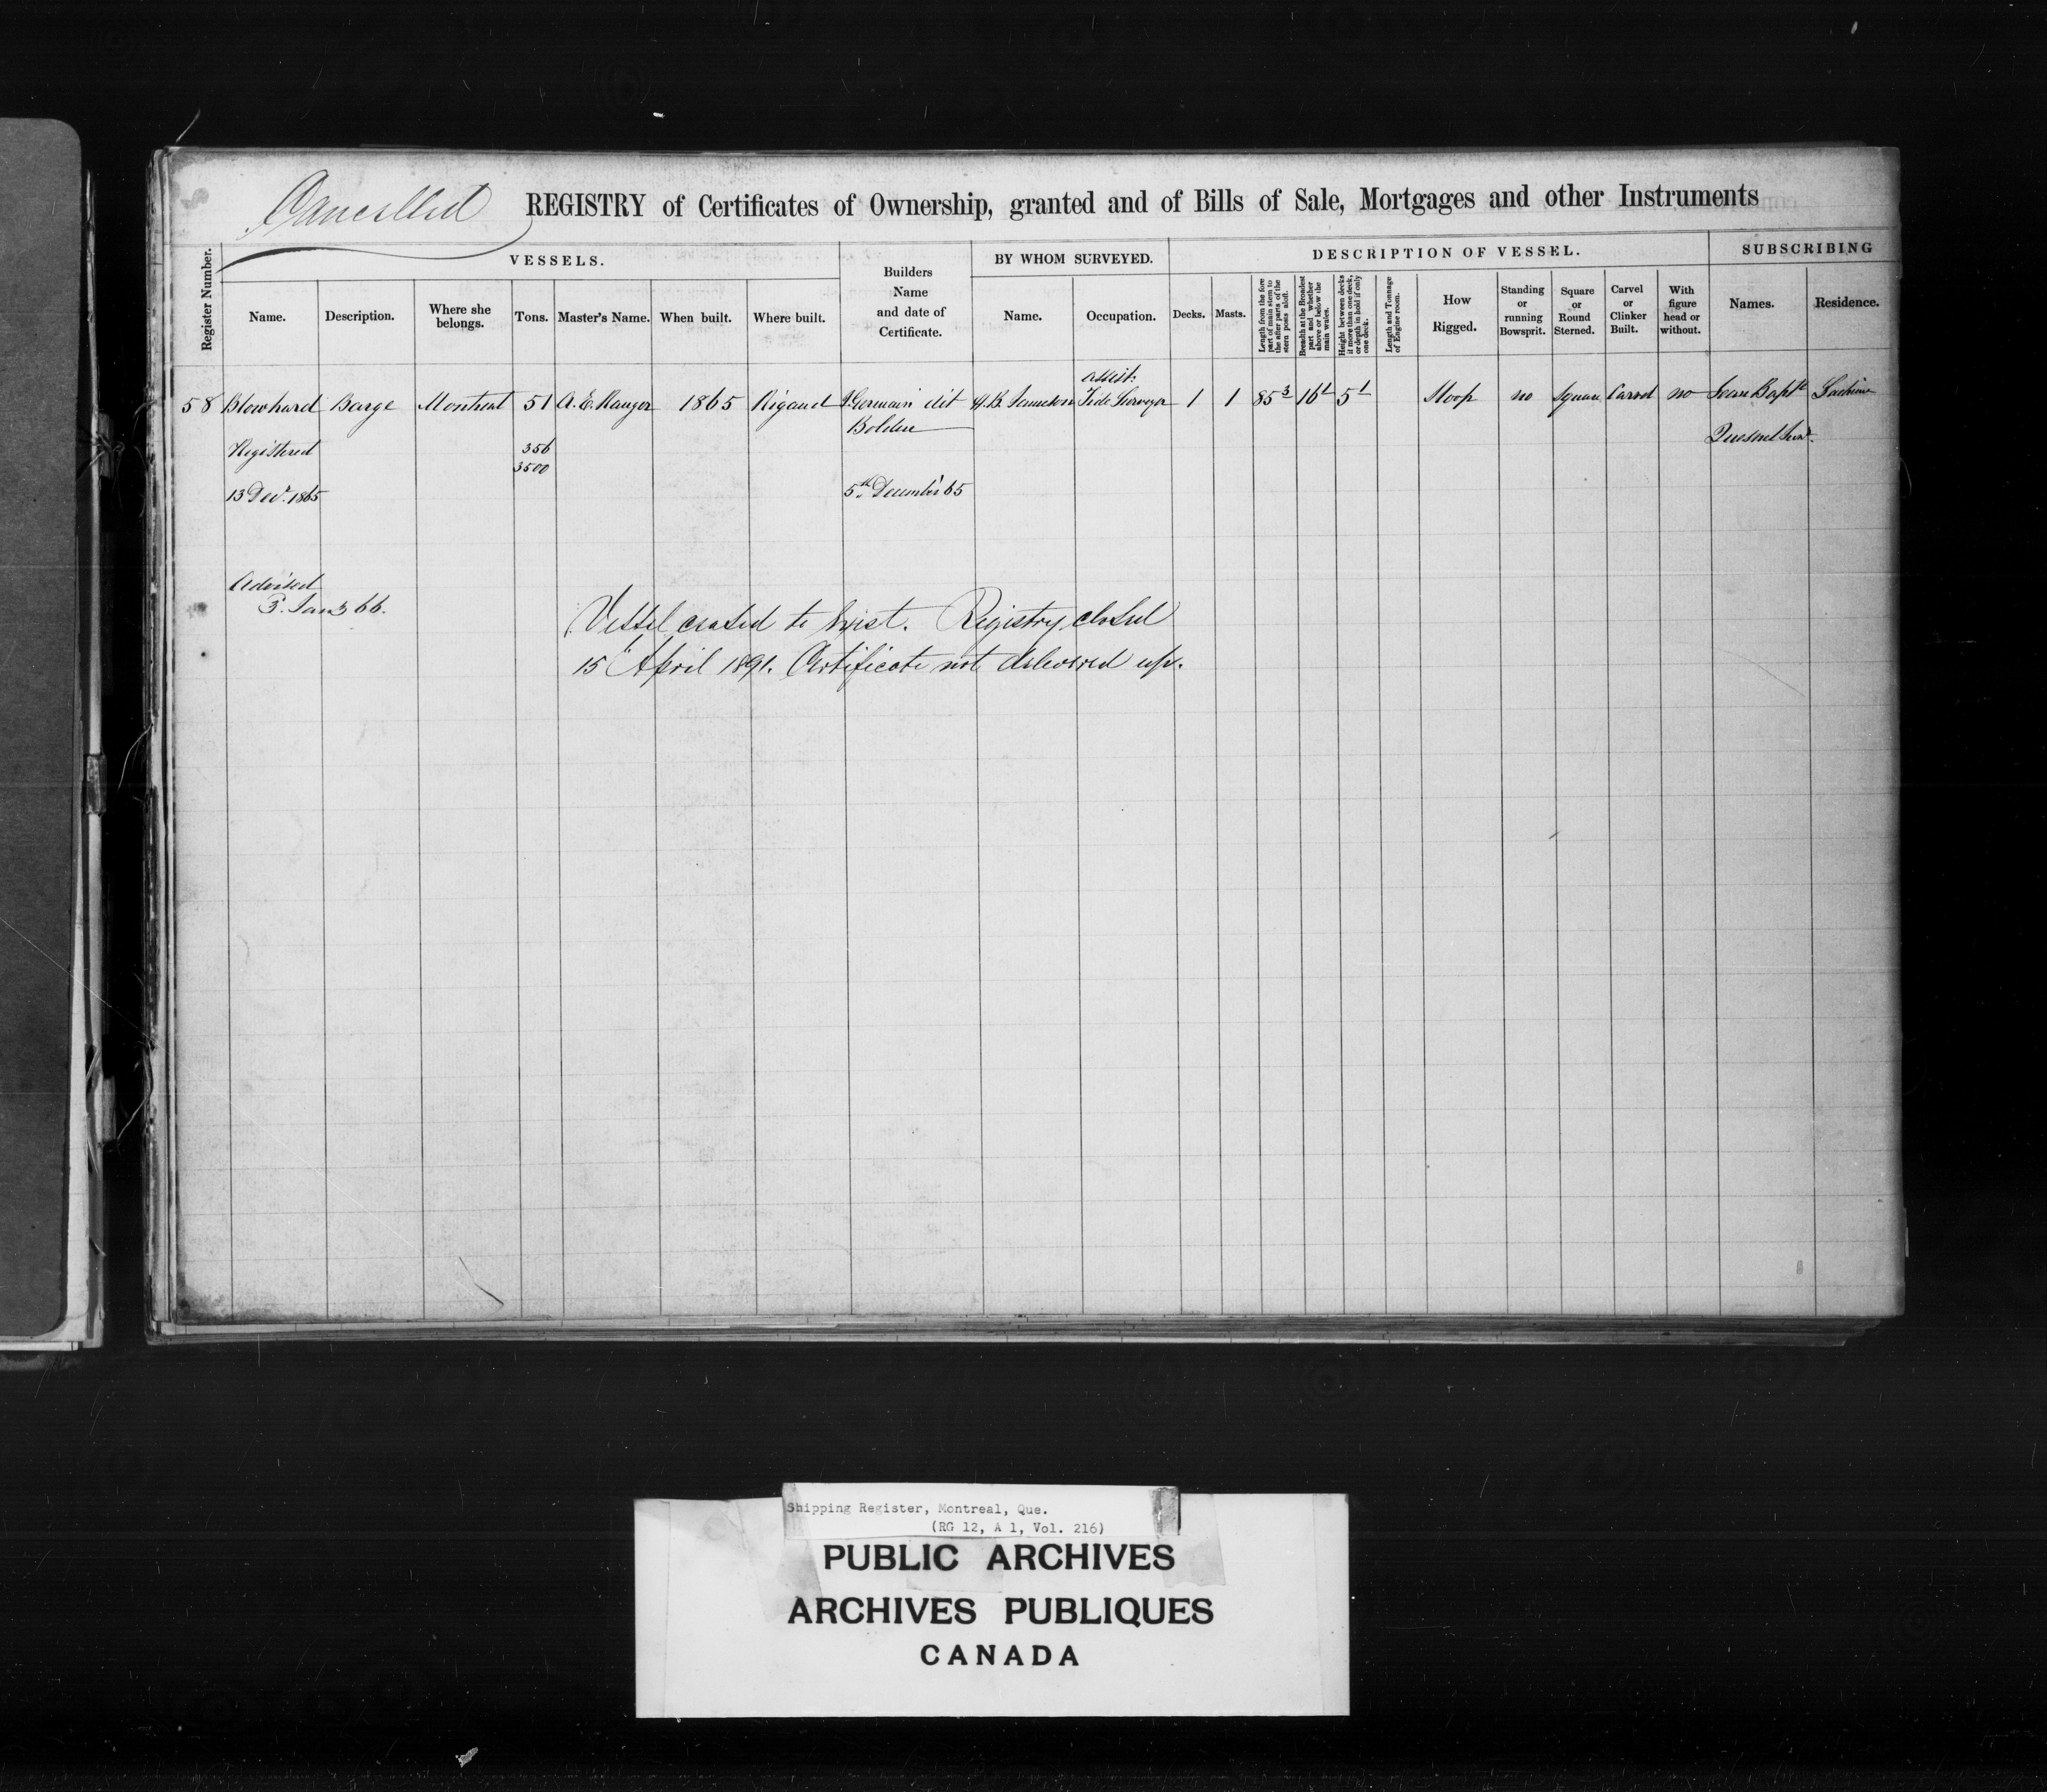 Cancelled REGISTRY of Certificates of Ownership, granted and of Bills of Sale, Mortgages and other Instruments
Register Number.
VESSELS.
Name.
Description.
Where she
belongs.
Tons.
Master's Name.
When built.
Where built.
Builders
Name
and date of
Certificate.
BY WHOM SURVEYED.
Name.
Occupation.
DESCRIPTION OF VESSEL.
Decks.
Masts.
Length from the fore
part of main stem to
the after parts of the
stern posts aloft.
Breadth at the Broadest
part and whether
above or below the
main wales.
Height between decks
if more than one deck,
or depth in hold if only
one deck.
Length and Tonnage
of Engine room.
How
Rigged.
Standing
or
running
Bowsprit.
Square
or
Round
Sterned.
Carvel
or
Clinker
Built.
With
figure
head or
without.
SUBSCRIBING
Names.
Residence.
assist:
58 Blowhard Barge Montreal 51 A. E. Ranger 1865 Rigaud Germain dit H. B. Tide Surveyor 1 1 85 3 16 1 5 1 Sloop no Square Carvel no Jean Bapte Lachine
Quesnel
Registered
356
3500
13 Decr. 1865
5th December 65
Advised
3. Jany 66.
Vessel ceased to exist. Registry closed
15 April 1891. Certificate not delivered up.
Shipping Register, Montreal, Que.
(RG 12, A 1, Vol. 216)
PUBLIC ARCHIVES
ARCHIVES PUBLIQUES
CANADA